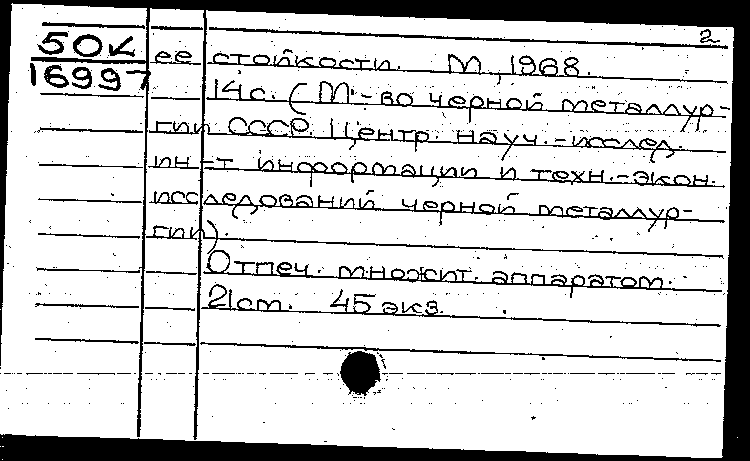 2
50к
16997
ее стойкости. М., 1968.
14с. (М-во черной металлур-
гии СССР. Центр. науч.-исслед.
ин-т информации и техн.-экон.
исследований черной металлур-
гии).
Отпеч. множит. аппаратом.
21см. 45 экз.